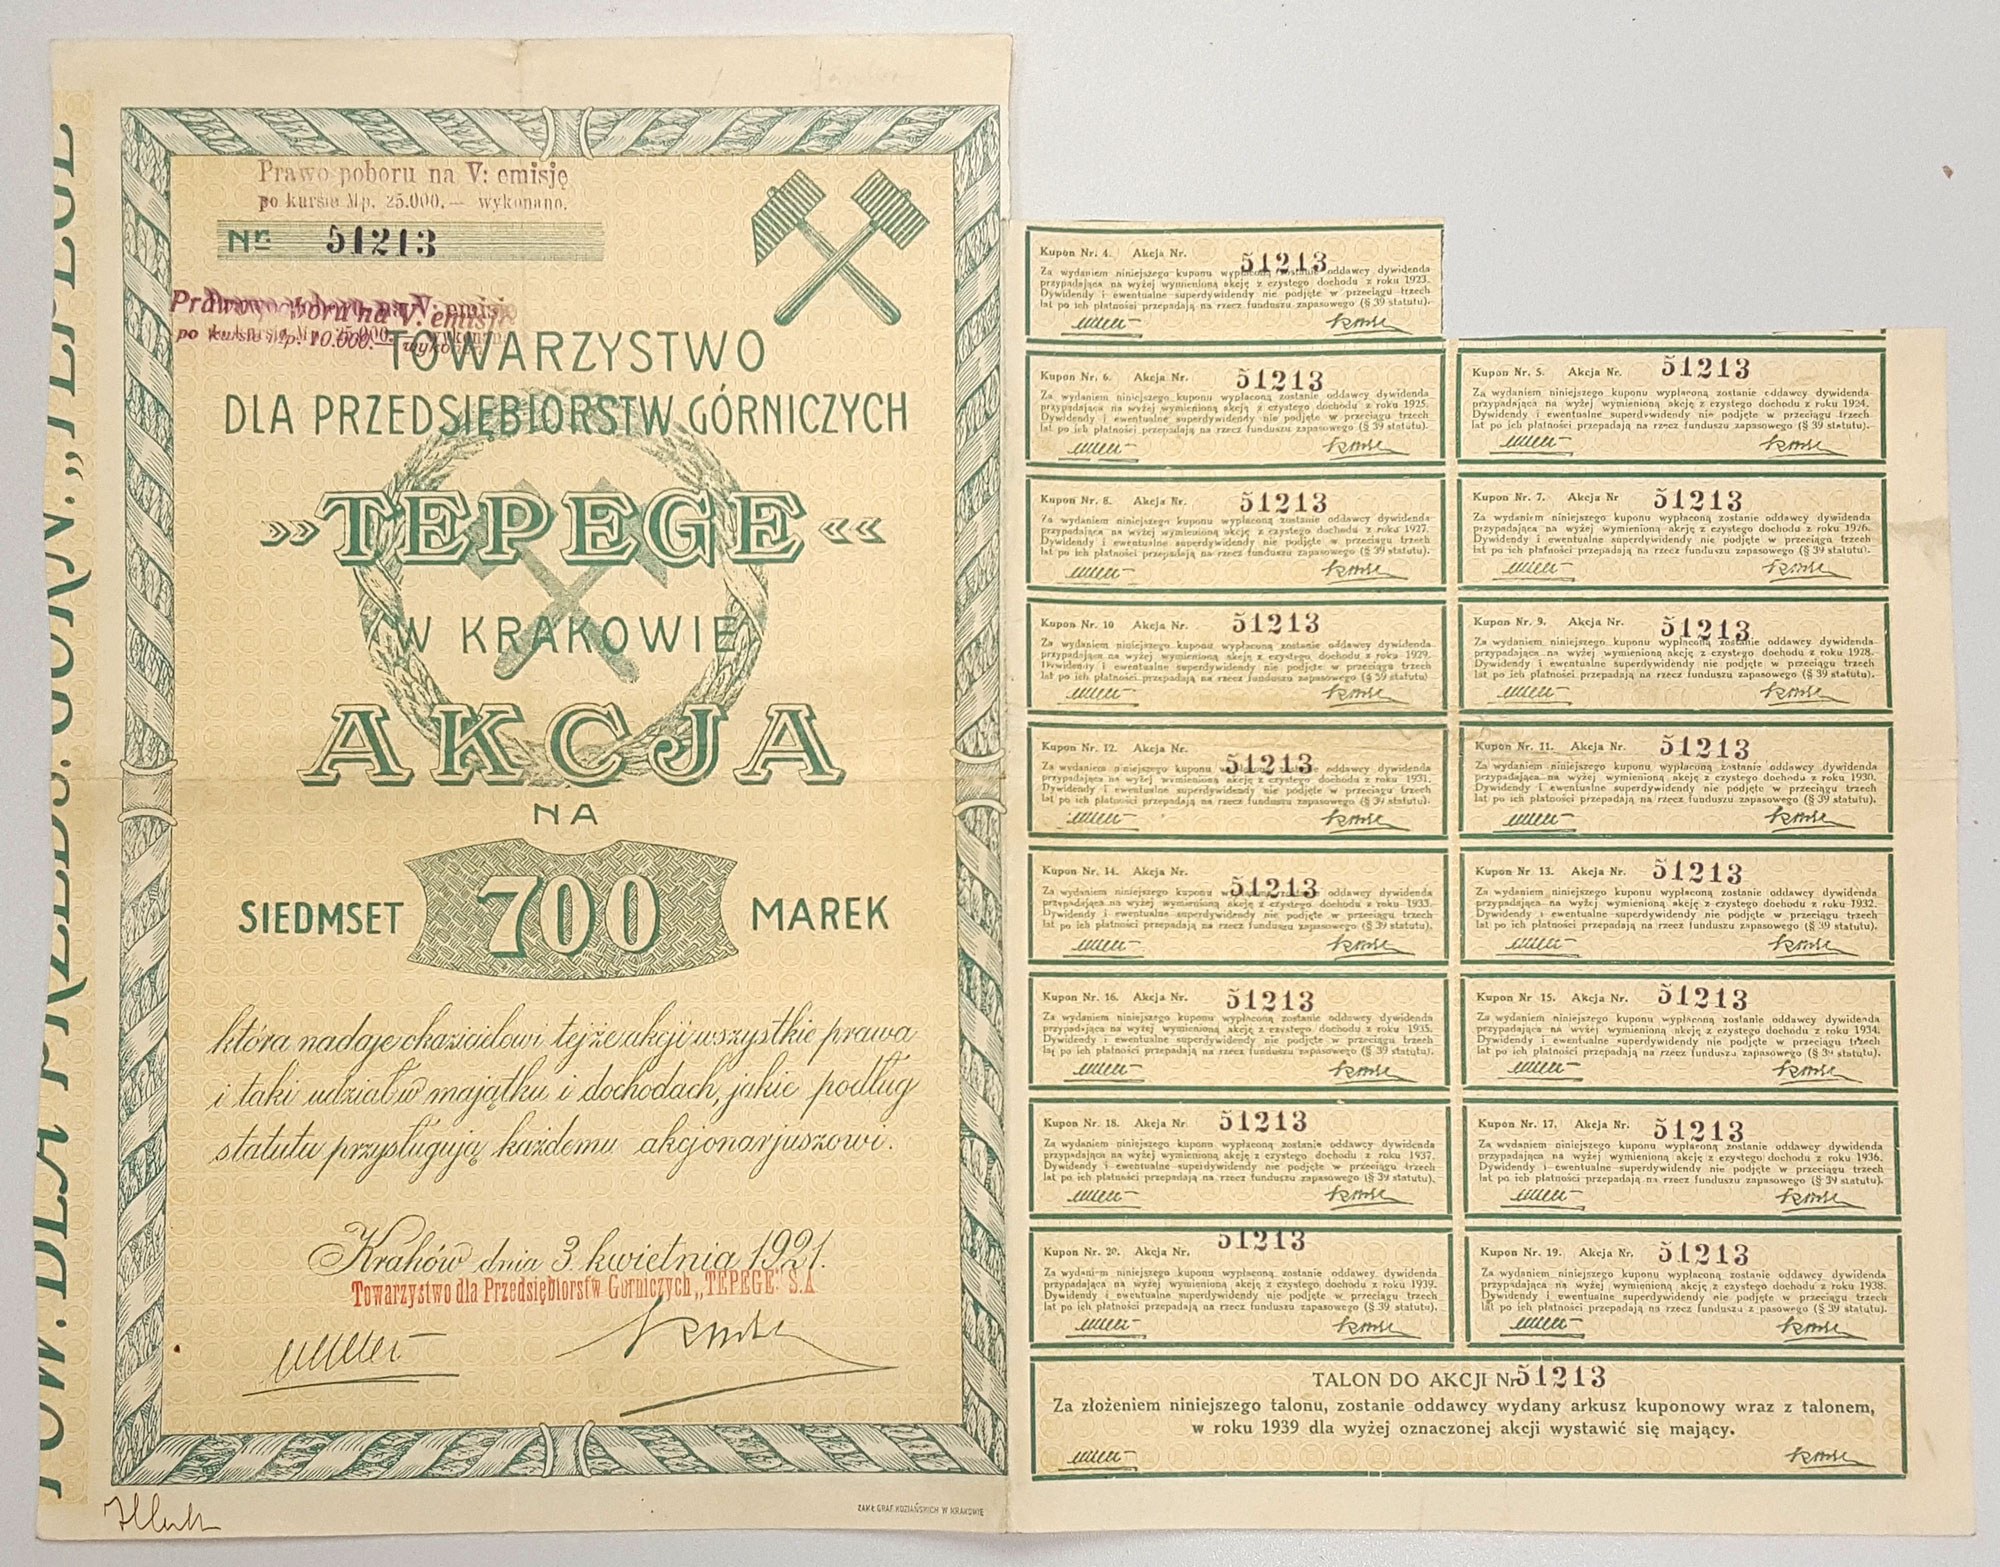 Prawo poboru na V: emisję
po kursie Mp. 25.000.— wykonano.
Nr. 51213
Prawo poboru na V. emisję
po kursie Mp. 10.000.—
TOWARZYSTWO
DLA PRZEDSIĘBIORSTW GÓRNICZYCH
»TEPEGE«
W KRAKOWIE
AKCJA
NA
SIEDMSET 700 MAREK
która nadaje okazicielowi tejże akcji wszystkie prawa
i taki udział w majątku i dochodach, jakie podług
statutu przysługują każdemu akcjonarjuszowi.
Kraków dnia 3. kwietnia 1921.
Towarzystwo dla Przedsiębiorstw Górniczych „TEPEGE" S.A
ZAKŁ. GRAF. KOZIAŃSKICH W KRAKOWIE
TOW. DLA PRZEDS. GÓRN. „TEPEGE
Kupon Nr. 4. Akcja Nr. 51213
Za wydaniem niniejszego kuponu wypłaconą zostanie oddawcy dywidenda
przypadająca na wyżej wymienioną akcję z czystego dochodu z roku 1923.
Dywidendy i ewentualne superdywidendy nie podjęte w przeciągu trzech
lat po ich płatności przepadają na rzecz funduszu zapasowego (§ 39 statutu).
Kupon Nr. 5. Akcja Nr. 51213
Za wydaniem niniejszego kuponu wypłaconą zostanie oddawcy dywidenda
przypadająca na wyżej wymienioną akcję z czystego dochodu z roku 1924.
Dywidendy i ewentualne superdywidendy nie podjęte w przeciągu trzech
lat po ich płatności przepadają na rzecz funduszu zapasowego (§ 39 statutu).
Kupon Nr. 6. Akcja Nr. 51213
Za wydaniem niniejszego kuponu wypłaconą zostanie oddawcy dywidenda
przypadająca na wyżej wymienioną akcję z czystego dochodu z roku 1925.
Dywidendy i ewentualne superdywidendy nie podjęte w przeciągu trzech
lat po ich płatności przepadają na rzecz funduszu zapasowego (§ 39 statutu).
Kupon Nr. 7. Akcja Nr 51213
Za wydaniem niniejszego kuponu wypłaconą zostanie oddawcy dywidenda
przypadająca na wyżej wymienioną akcję z czystego dochodu z roku 1926.
Dywidendy i ewentualne superdywidendy nie podjęte w przeciągu trzech
lat po ich płatności przepadają na rzecz funduszu zapasowego (§ 39 statutu).
Kupon Nr. 8. Akcja Nr. 51213
Za wydaniem niniejszego kuponu wypłaconą zostanie oddawcy dywidenda
przypadająca na wyżej wymienioną akcję z czystego dochodu z roku 1927.
Dywidendy i ewentualne superdywidendy nie podjęte w przeciągu trzech
lat po ich płatności przepadają na rzecz funduszu zapasowego (§ 39 statutu).
Kupon Nr. 9. Akcja Nr. 51213
Za wydaniem niniejszego kuponu wypłaconą zostanie oddawcy dywidenda
przypadająca na wyżej wymienioną akcję z czystego dochodu z roku 1928.
Dywidendy i ewentualne superdywidendy nie podjęte w przeciągu trzech
lat po ich płatności przepadają na rzecz funduszu zapasowego (§ 39 statutu).
Kupon Nr. 10 Akcja Nr. 51213
Za wydaniem niniejszego kuponu wypłaconą zostanie oddawcy dywidenda
przypadająca na wyżej wymienioną akcję z czystego dochodu z roku 1929.
Dywidendy i ewentualne superdywidendy nie podjęte w przeciągu trzech
lat po ich płatności przepadają na rzecz funduszu zapasowego (§ 39 statutu)
Kupon Nr. 11. Akcja Nr. 51213
Za wydaniem niniejszego kuponu wypłaconą zostanie oddawcy dywidenda
przypadająca na wyżej wymienioną akcję z czystego dochodu z roku 1930.
Dywidendy i ewentualne superdywidendy nie podjęte w przeciągu trzech
lat po ich płatności przepadają na rzecz funduszu zapasowego (§ 39 statutu).
Kupon Nr. 12. Akcja Nr. 51213
Za wydaniem niniejszego kuponu wypłaconą zostanie oddawcy dywidenda
przypadająca na wyżej wymienioną akcję z czystego dochodu z roku 1931.
Dywidendy i ewentualne superdywidendy nie podjęte w przeciągu trzech
lat po ich płatności przepadają na rzecz funduszu zapasowego (§ 39 statutu).
Kupon Nr 13. Akcja Nr. 51213
Za wydaniem niniejszego kuponu wypłaconą zostanie oddawcy dywidenda
przypadająca na wyżej wymienioną akcję z czystego dochodu z roku 1932.
Dywidendy i ewentualne superdywidendy nie podjęte w przeciągu trzech
lat po ich płatności przepadają na rzecz funduszu zapasowego (§ 39 statutu).
Kupon Nr. 14. Akcja Nr. 51213
Za wydaniem niniejszego kuponu wypłaconą zostanie oddawcy dywidenda
przypadająca na wyżej wymienioną akcję z czystego dochodu z roku 1933.
Dywidendy i ewentualne superdywidendy nie podjęte w przeciągu trzech
lat po ich płatności przepadają na rzecz funduszu zapasowego (§ 39 statutu).
Kupon Nr 15. Akcja Nr. 51213
Za wydaniem niniejszego kuponu wypłaconą zostanie oddawcy dywidenda
przypadająca na wyżej wymienioną akcję z czystego dochodu z roku 1934.
Dywidendy i ewentualne superdywidendy nie podjęte w przeciągu trzech
lat po ich płatności przepadają na rzecz funduszu zapasowego (§ 39 statutu).
Kupon Nr. 16. Akcja Nr. 51213
Za wydaniem niniejszego kuponu wypłaconą zostanie oddawcy dywidenda
przypadająca na wyżej wymienioną akcję z czystego dochodu z roku 1935.
Dywidendy i ewentualne superdywidendy nie podjęte w przeciągu trzech
lat po ich płatności przepadają na rzecz funduszu zapasowego (§ 39 statutu).
Kupon Nr. 17. Akcja Nr. 51213
Za wydaniem niniejszego kuponu wypłaconą zostanie oddawcy dywidenda
przypadająca na wyżej wymienioną akcję z czystego dochodu z roku 1936.
Dywidendy i ewentualne superdywidendy nie podjęte w przeciągu trzech
lat po ich płatności przepadają na rzecz funduszu zapasowego (§ 39 statutu).
Kupon Nr. 18. Akcja Nr 51213
Za wydaniem niniejszego kuponu wypłaconą zostanie oddawcy dywidenda
przypadająca na wyżej wymienioną akcję z czystego dochodu z roku 1937.
Dywidendy i ewentualne superdywidendy nie podjęte w przeciągu trzech
lat po ich płatności przepadają na rzecz funduszu zapasowego (§ 39 statutu).
Kupon Nr. 19. Akcja Nr. 51213
Za wydaniem niniejszego kuponu wypłaconą zostanie oddawcy dywidenda
przypadająca na wyżej wymienioną akcję z czystego dochodu z roku 1938.
Dywidendy i ewentualne superdywidendy nie podjęte w przeciągu trzech
lat po ich płatności przepadają na rzecz funduszu zapasowego (§ 39 statutu).
Kupon Nr. 20. Akcja Nr. 51213
Za wydaniem niniejszego kuponu wypłaconą zostanie oddawcy dywidenda
przypadająca na wyżej wymienioną akcję z czystego dochodu z roku 1939.
Dywidendy i ewentualne superdywidendy nie podjęte w przeciągu trzech
lat po ich płatności przepadają na rzecz funduszu zapasowego (§ 39 statutu).
TALON DO AKCJI Nr 51213
Za złożeniem niniejszego talonu, zostanie oddawcy wydany arkusz kuponowy wraz z talonem,
w roku 1939 dla wyżej oznaczonej akcji wystawić się mający.